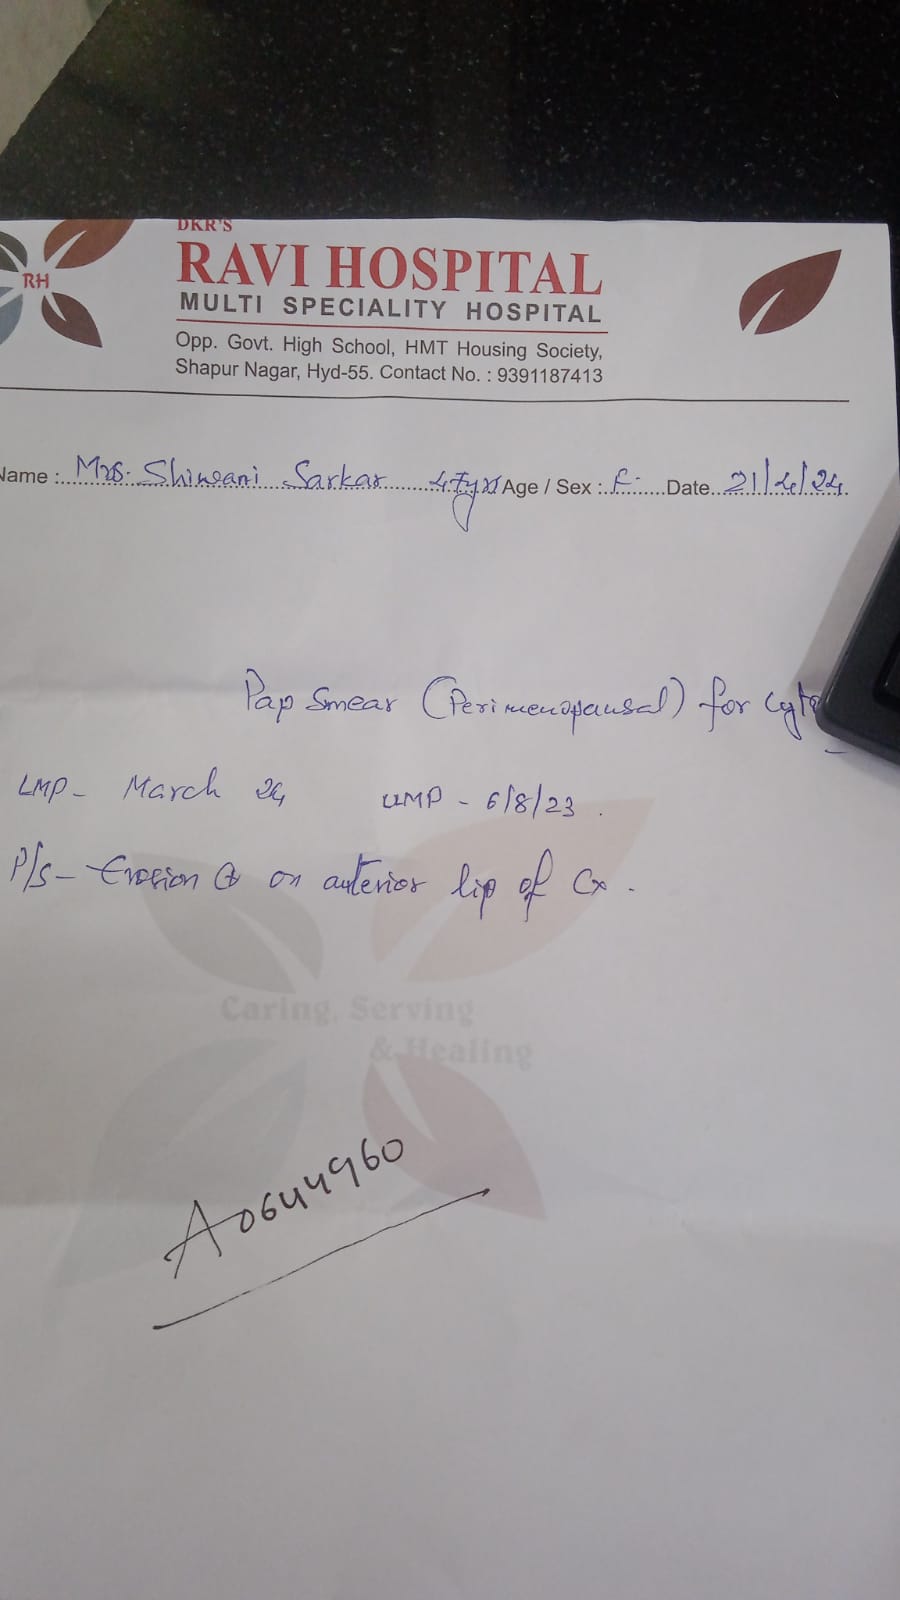 DKR'S
RAVI HOSPITAL
RH
MULTI SPECIALITY HOSPITAL
Opp. Govt. High School, HMT Housing Society,
Shapur Nagar, Hyd-55. Contact No. : 9391187413
Name : Mrs. Shiwani Sarkar 47yrs Age / Sex : F. Date 21/4/24
Pap Smear (Perimenopausal) for Cyto
LMP - March 24 LLMP - 6/8/23 .
P/S - Erosion ⊕ on anterior lip of Cx .
Caring, Serving
& Healing
A0644960